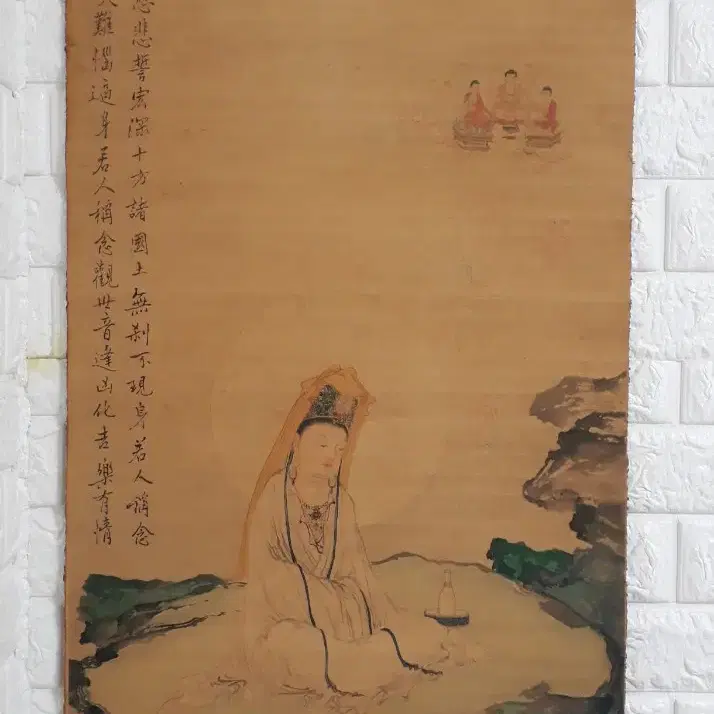 悲誓宏深十方諸國土無刹不現身若人稱念
難惱逼身若人稱念觀世音逢凶化吉樂有情